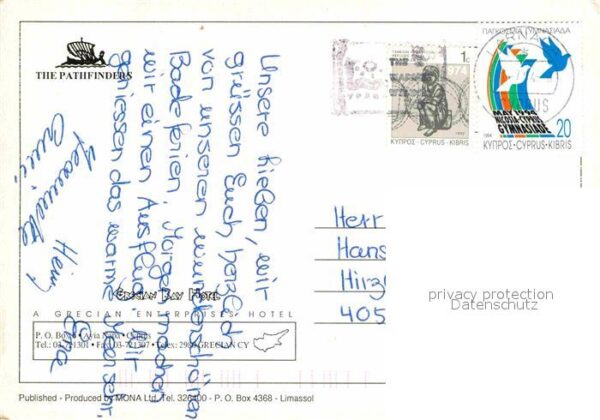 THE PATHFINDERS
Unsere Lieben, wir
grüssen Euch herzlich
von unseren wunderschönen
Badeferien, Morgen machen
wir einen Ausflug. Wir
geniessen das warme Meer sehr,
Heinz
GRECIAN BAY HOTEL
A GRECIAN ENTERPRISES HOTEL
P. O. Box Ayia Napa - Cyprus
Tel.: 03-721301 • Fax: 03-721307 • Telex: GRECIAN CY
Published - Produced by MONA Ltd. Tel. 326400 - P. O. Box 4368 - Limassol
1c
1974
ΚΥΠΡΟΣ·CYPRUS·KIBRIS
ΠΑΓΚΟΣΜΙΑ ΓΥΜΝΑΣΙΑΔΑ
MAY 1994
NICOSIA-CYPRUS
GYMNASIADE
1994
20
ΚΥΠΡΟΣ·CYPRUS·KIBRIS
Herr
Hans
Hirz
405
privacy protection
Datenschutz